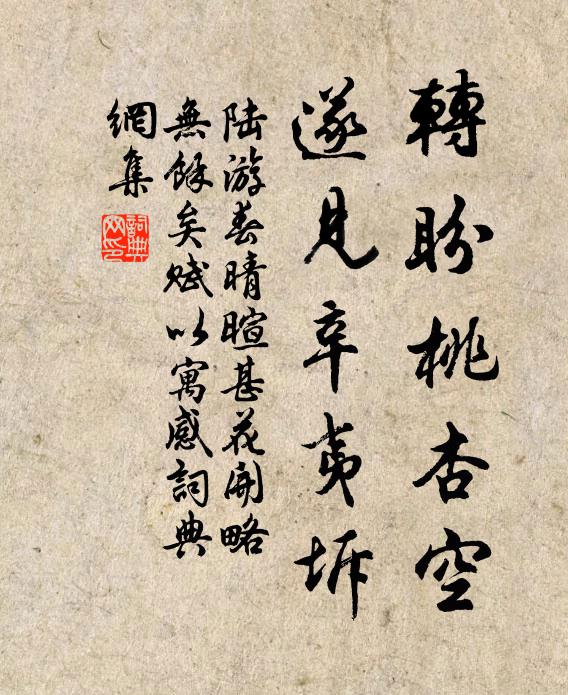 轉盼桃杏空
遂見辛夷坼
陆游春晴暄甚花開略
無餘矣賦以寓感詞典
網集
詞典
网印